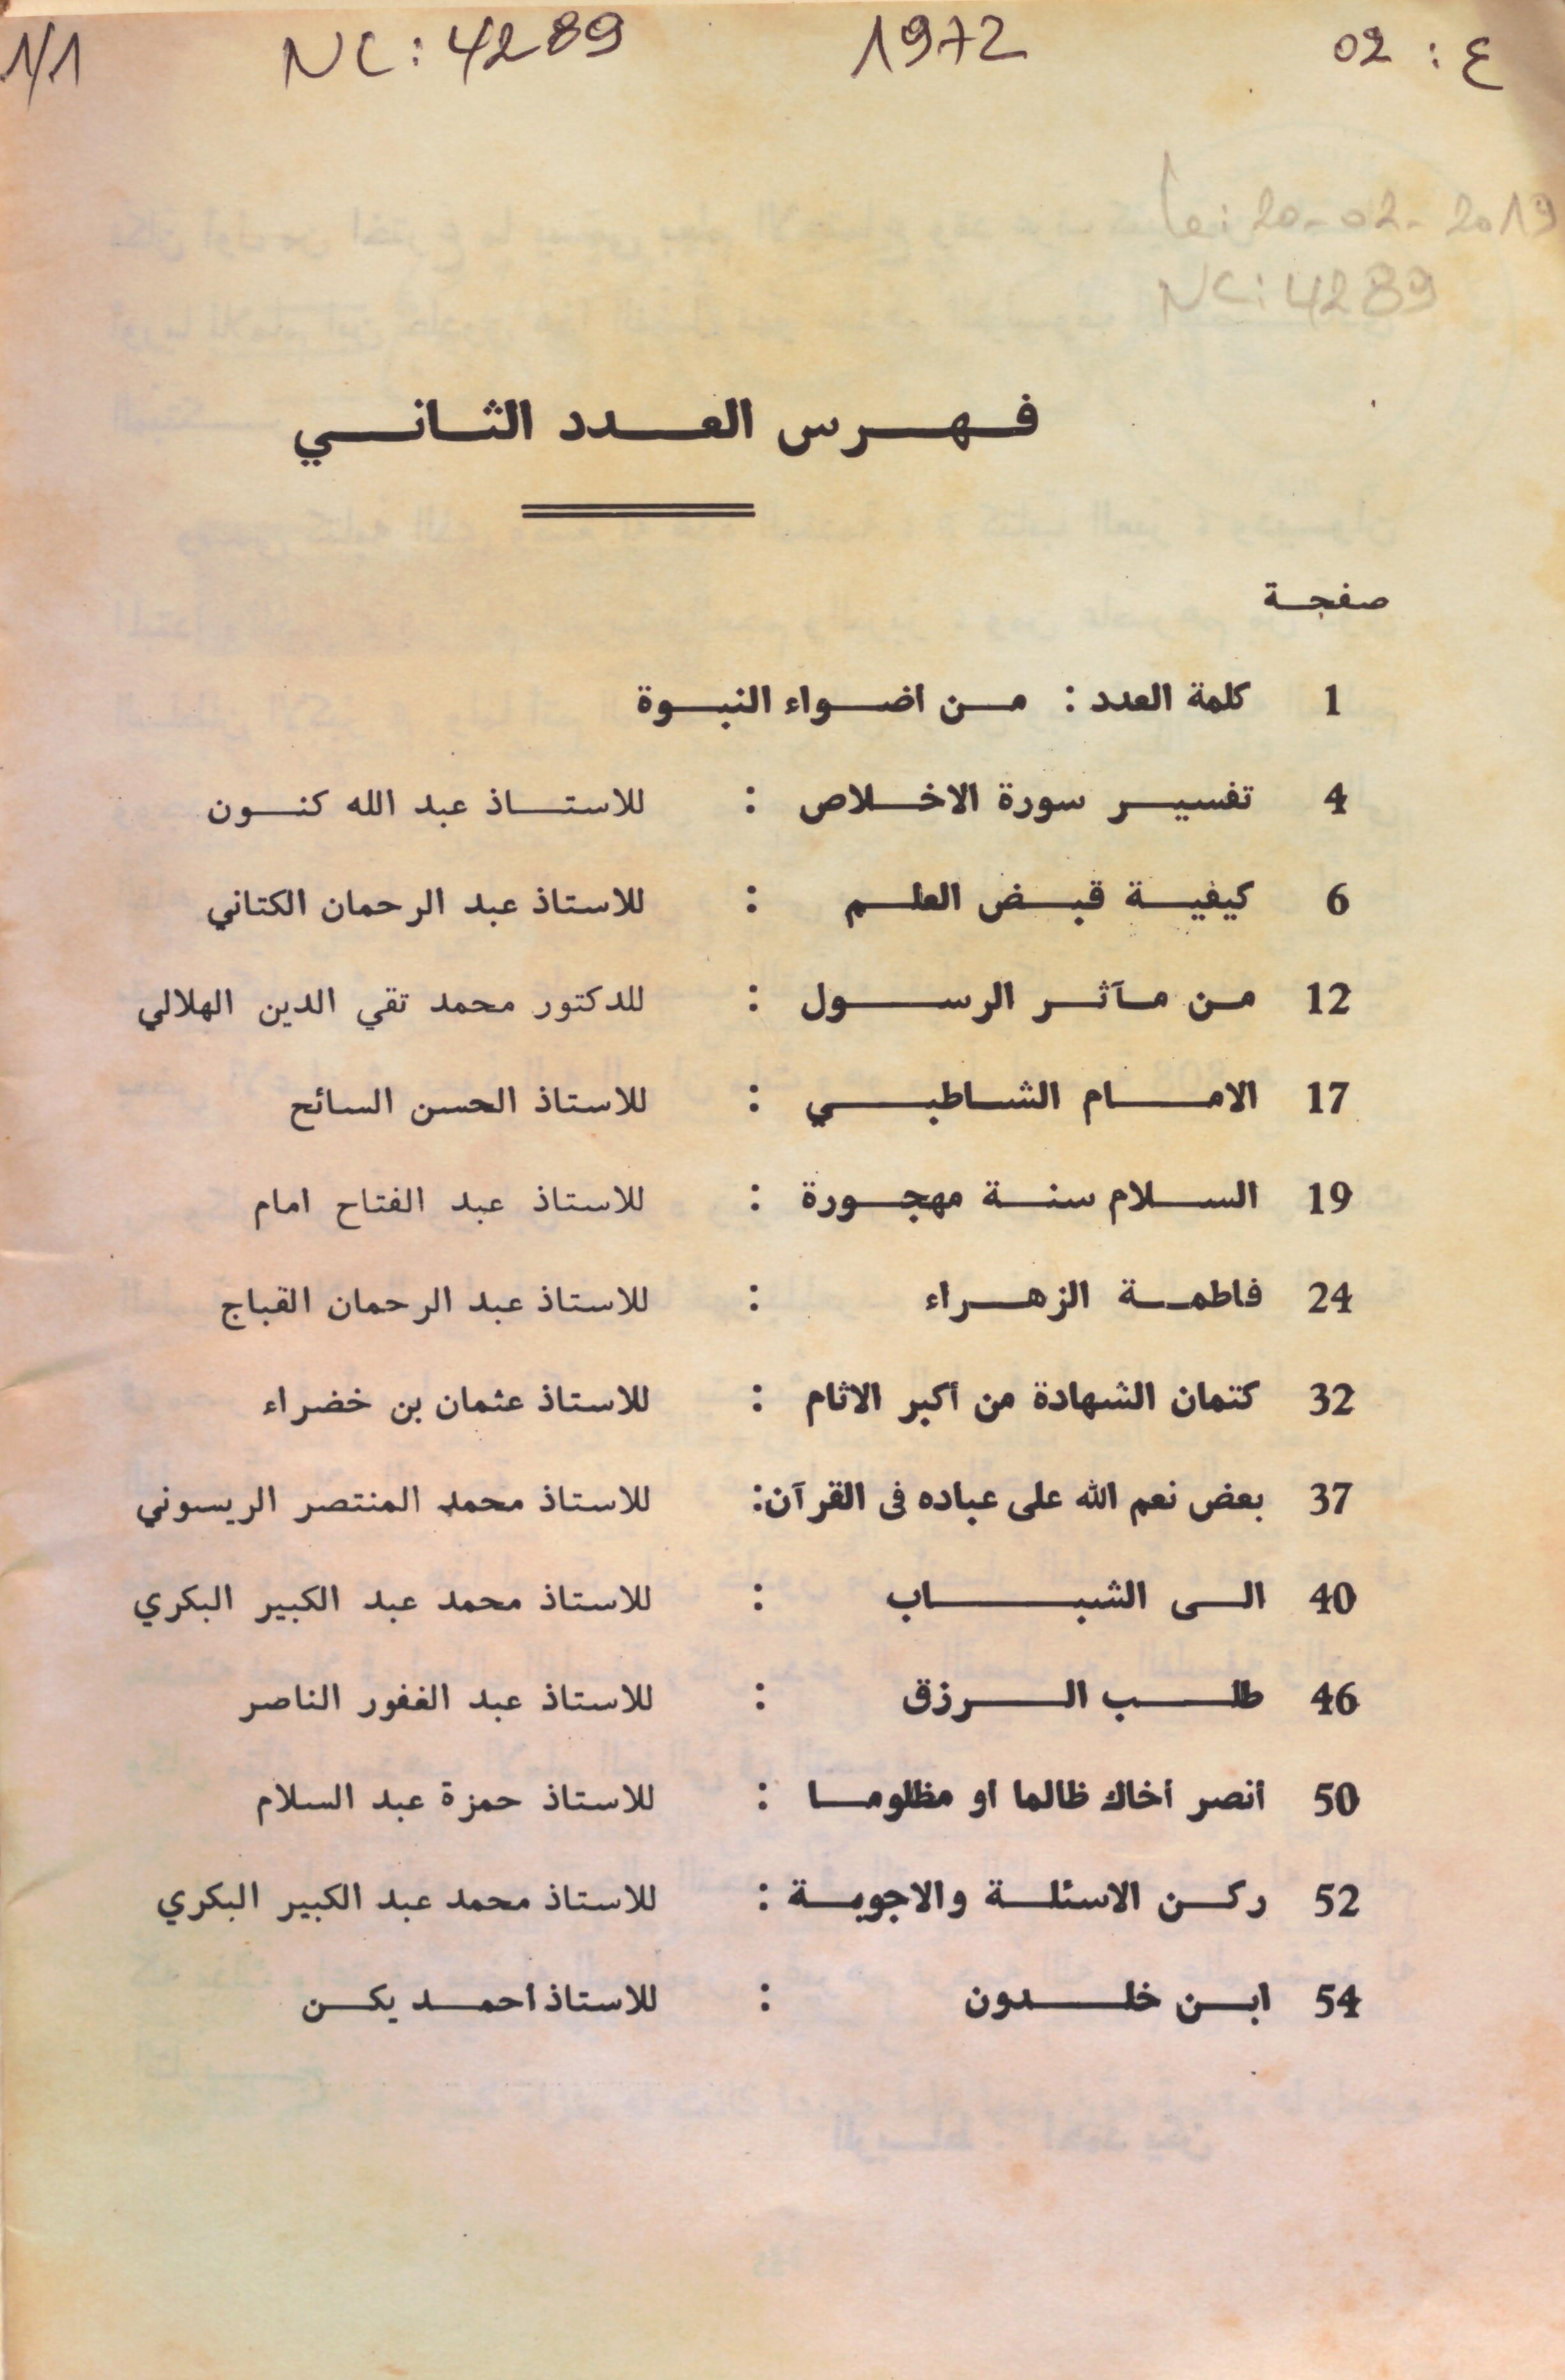 1/1 NC: 4289 1972 ع: 02
le: 20-02-2019
NC: 4289
فهرس العدد الثاني
صفحة
1 كلمة العدد : من اضواء النبوة
4 تفسير سورة الاخلاص : للاستاذ عبد الله كنون
6 كيفية قبض العلم : للاستاذ عبد الرحمان الكتاني
12 من مآثر الرسول : للدكتور محمد تقي الدين الهلالي
17 الامام الشاطبي : للاستاذ الحسن السائح
19 السلام سنة مهجورة : للاستاذ عبد الفتاح امام
24 فاطمة الزهراء : للاستاذ عبد الرحمان القباج
32 كتمان الشهادة من أكبر الاثام : للاستاذ عثمان بن خضراء
37 بعض نعم الله على عباده فى القرآن: للاستاذ محمد المنتصر الريسوني
40 الى الشباب : للاستاذ محمد عبد الكبير البكري
46 طلب الرزق : للاستاذ عبد الغفور الناصر
50 أنصر أخاك ظالما او مظلوما : للاستاذ حمزة عبد السلام
52 ركن الاسئلة والاجوبة : للاستاذ محمد عبد الكبير البكري
54 ابن خلدون : للاستاذ احمد يكن